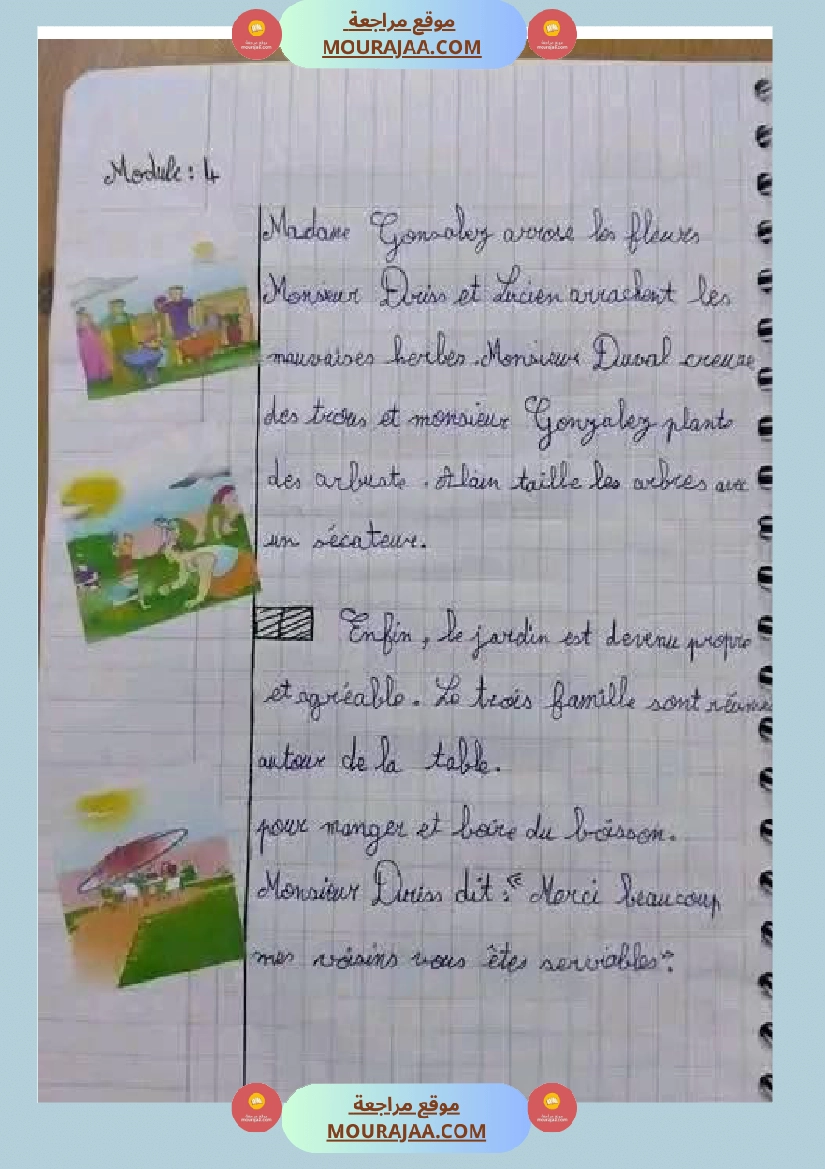 موقع مراجعة
MOURAJAA.COM
Module : 4
Madame Gonsalez arrose les fleurs
Monsieur Driss et Lucien arrachent les
mauvaises herbes. Monsieur Duval creuse
des trous et monsieur Gonzalez plante
des arbuste. Alain taille les arbres avec
un sécateur.
Enfin, le jardin est devenu propre
et agréable. Le trois famille sont réunies
autour de la table.
pour manger et boire du boisson.
Monsieur Driss dit : " Merci beaucoup
mes voisins vous êtes serviables".
موقع مراجعة
MOURAJAA.COM